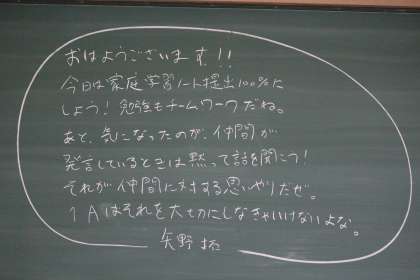 おはようございます!!
今日は家庭学習ノート提出100%に
しよう！勉強もチームワークだね。
あと、気になったのが、仲間が
発言しているときは黙って話を聞こう！
それが仲間に対する思いやりだぜ。
1Aはそれを大切にしなきゃいけないよな。
矢野